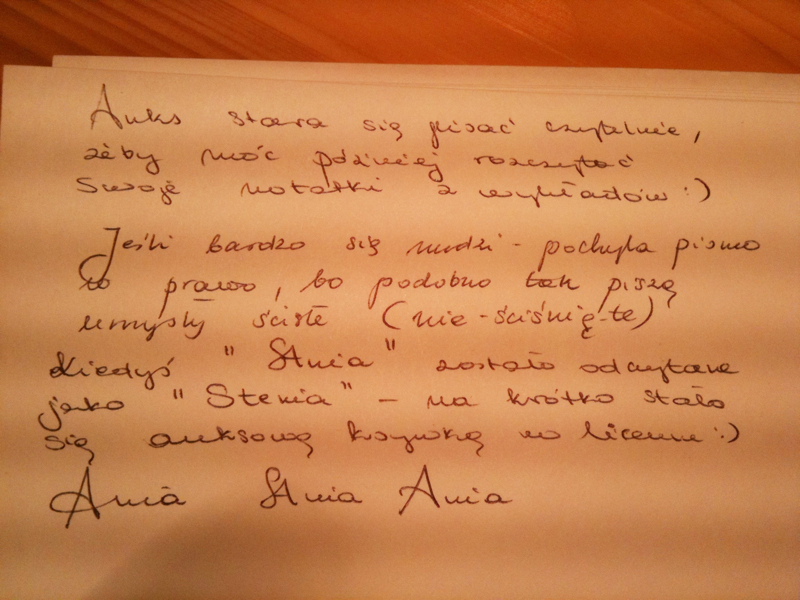 Auks stara się pisać czytelnie,
żeby móc później rozczytać
swoje notatki z wykładów :)
Jeśli bardzo się nudzi - pochyla pismo
w prawo, bo podobno tak piszą
umysły ścisłe (nie-ściśnię-te)
Kiedyś "Ania" zostało odczytane
jako "Stenia" - na krótko stało
się auksową ksywką w liceum :)
Ania Ania Ania